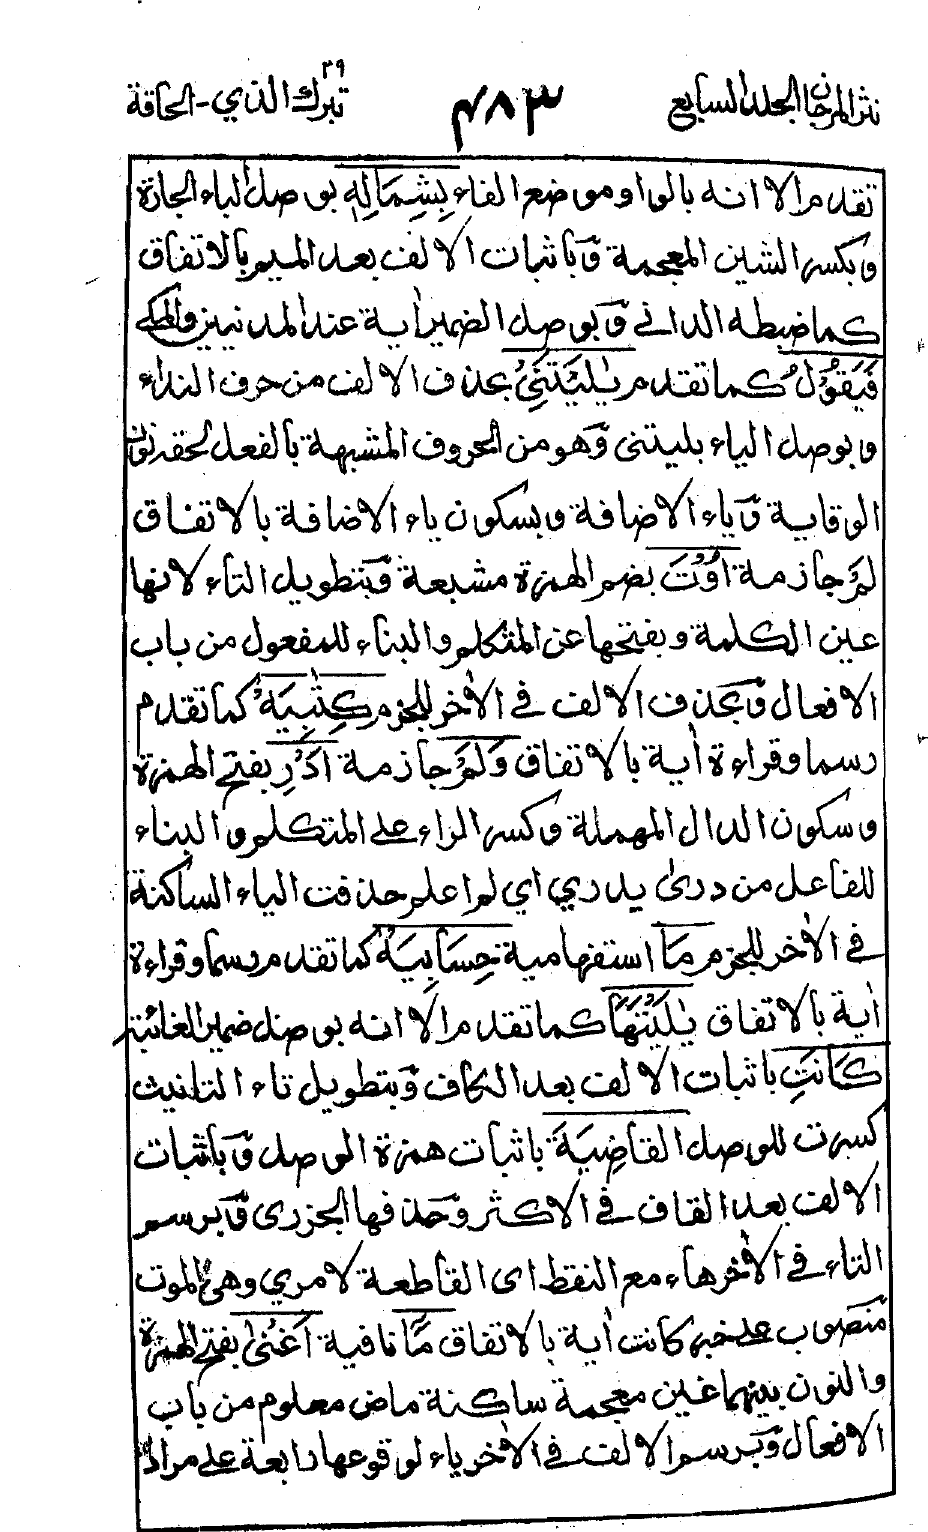 نثر المرجان الجلد السابع
٤٨٣
تبرك الذي - الحاقة
٢٩
تقدم الا انه بالواو موضع الفاء بِشِمَالِهٖ بوصل الباء الجارة
وبكسر الشين المعجمة وَباثبات الالف بعد الميم بالاتفاق
كما ضبطه الداني وَبوصل الضمير اٰية عند المدنيين والمكي
فَيَقُوْلُ كما تقدم يٰلَيْتَنِيْ بحذف الالف من حرف النداء
وبوصل الياء بليتنى وَهو من الحروف المشبهة بالفعل لحقه نون
الوقاية وَياء الاضافة وبسكون ياء الاضافة بالاتفاق
لَمْ جازمة اُوْتَ بضم الهمزة مشبعة وَبتطويل التاء لانها
عين الكلمة وبفتحها عن المتكلم والبناء للمفعول من باب
الافعال وَبحذف الالف في الاٰخر للجزم كِتٰبِيَهْ كما تقدم
رسما وقراءة اٰية بالاتفاق وَلَمْ جازمة اَدْرِ بفتح الهمزة
وسكون الدال المهملة وكسر الراء على المتكلم والبناء
للفاعل من درىٰ يدري اي لم اعلم حذفت الياء الساكنة
في الاٰخر للجزم مَا استفهامية حِسَابِيَهْ كما تقدم رسما وقراءة
اٰية بالاتفاق يٰلَيْتَهَا كما تقدم الا انه بوصل ضمير الغائبة
كَانَتِ باثبات الالف بعد الكاف وَبتطويل تاء التانيث
كسرت للوصل القَاضِيَةَ باثبات همزة الوصل وَباثبات
الالف بعد القاف في الاكثر وَحذفها الجزرى وَبرسم
التاء في الاٰخر هاء مع النقط اى القاطعة لامري وهي الموت
منصوب على خبر كانت اٰية بالاتفاق مَا نافية اَغْنٰى بفتح الهمزة
والنون بينهما غين معجمة ساكنة ماض معلوم من باب
الافعال وَبرسم الالف في الاٰخر ياء لوقوعها رابعة على مراد